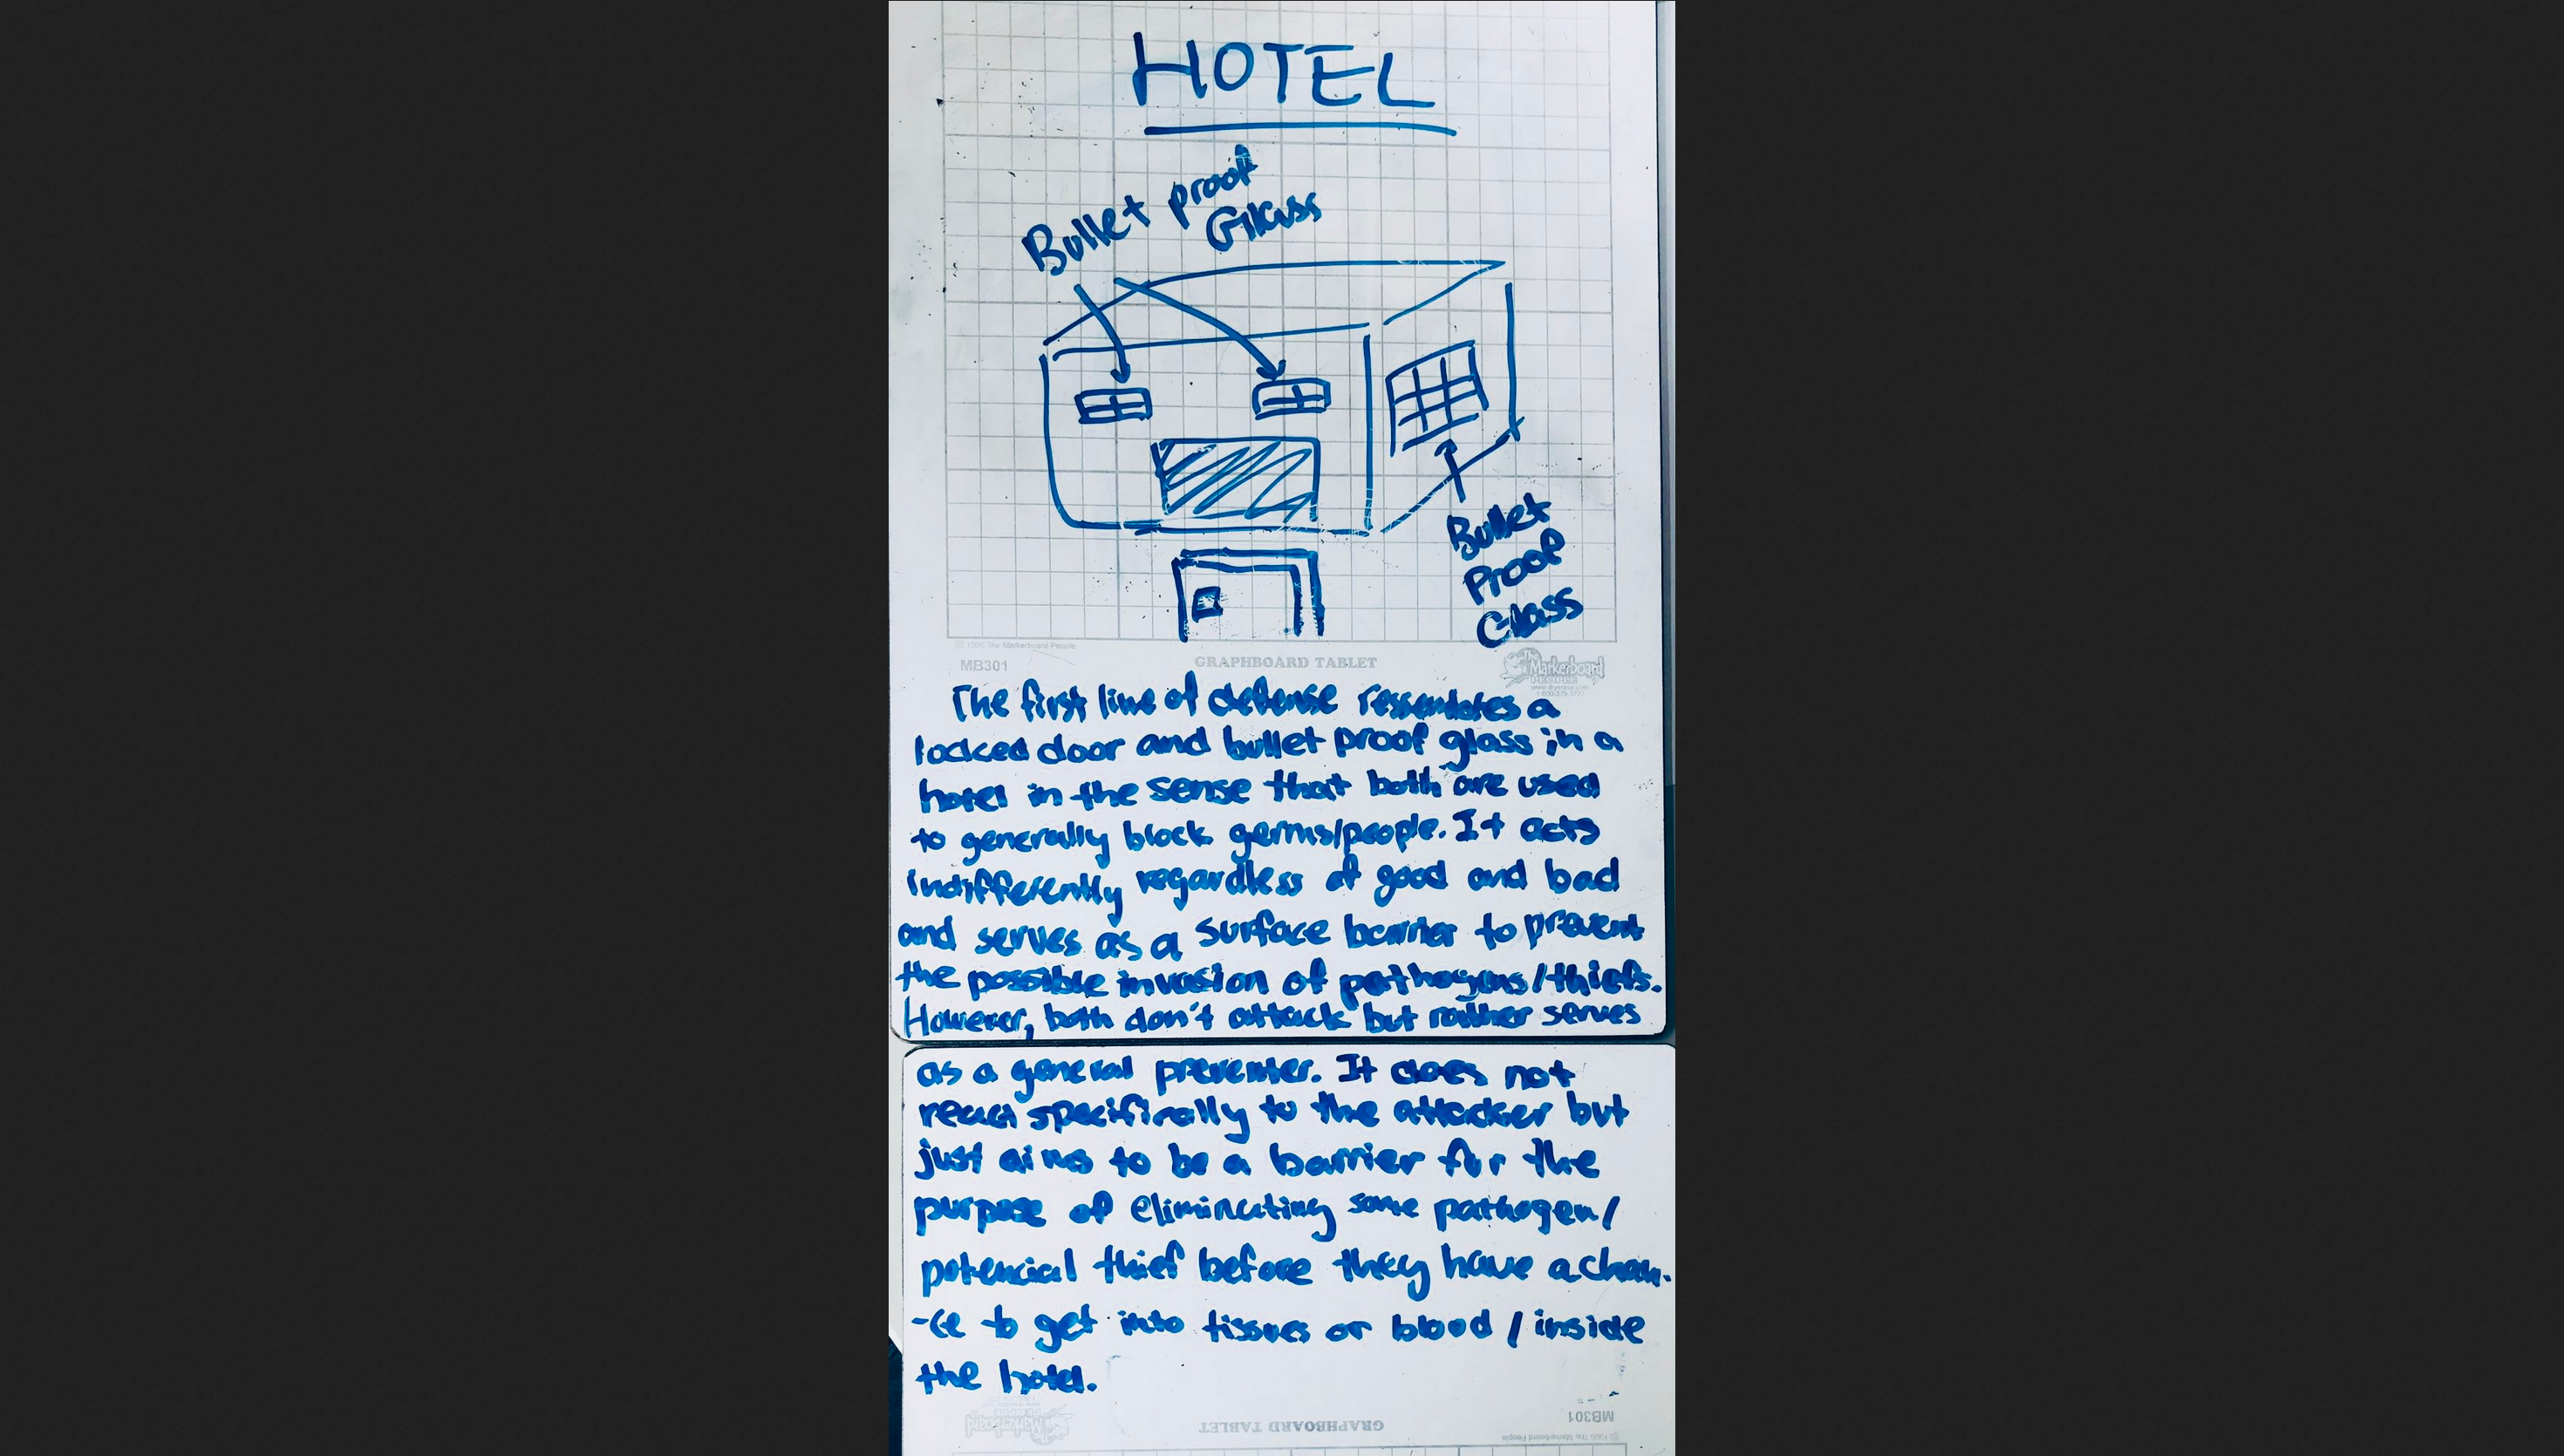 HOTEL
Bullet proof
Glass
Bullet
Proof
Glass
© 1990 The Markerboard People
MB301 GRAPHBOARD TABLET The Markerboard PEOPLE
The first line of defense ressembles a
locked door and bullet proof glass in a
hotel in the sense that both are used
to generally block germs/people. It acts
indifferently regardless of good and bad
and serves as a surface barrier to prevent
the possible invasion of pathogens/thiefs.
However, both don't attack but rather serves
as a general preventer. It does not
react specifically to the attacker but
just aims to be a barrier for the
purpose of eliminating some pathogen/
potencial thief before they have a chan-
-ce to get into tissues or blood / inside
the hotel.
MB301
GRAPHBOARD TABLET
© 1990 The Markerboard People